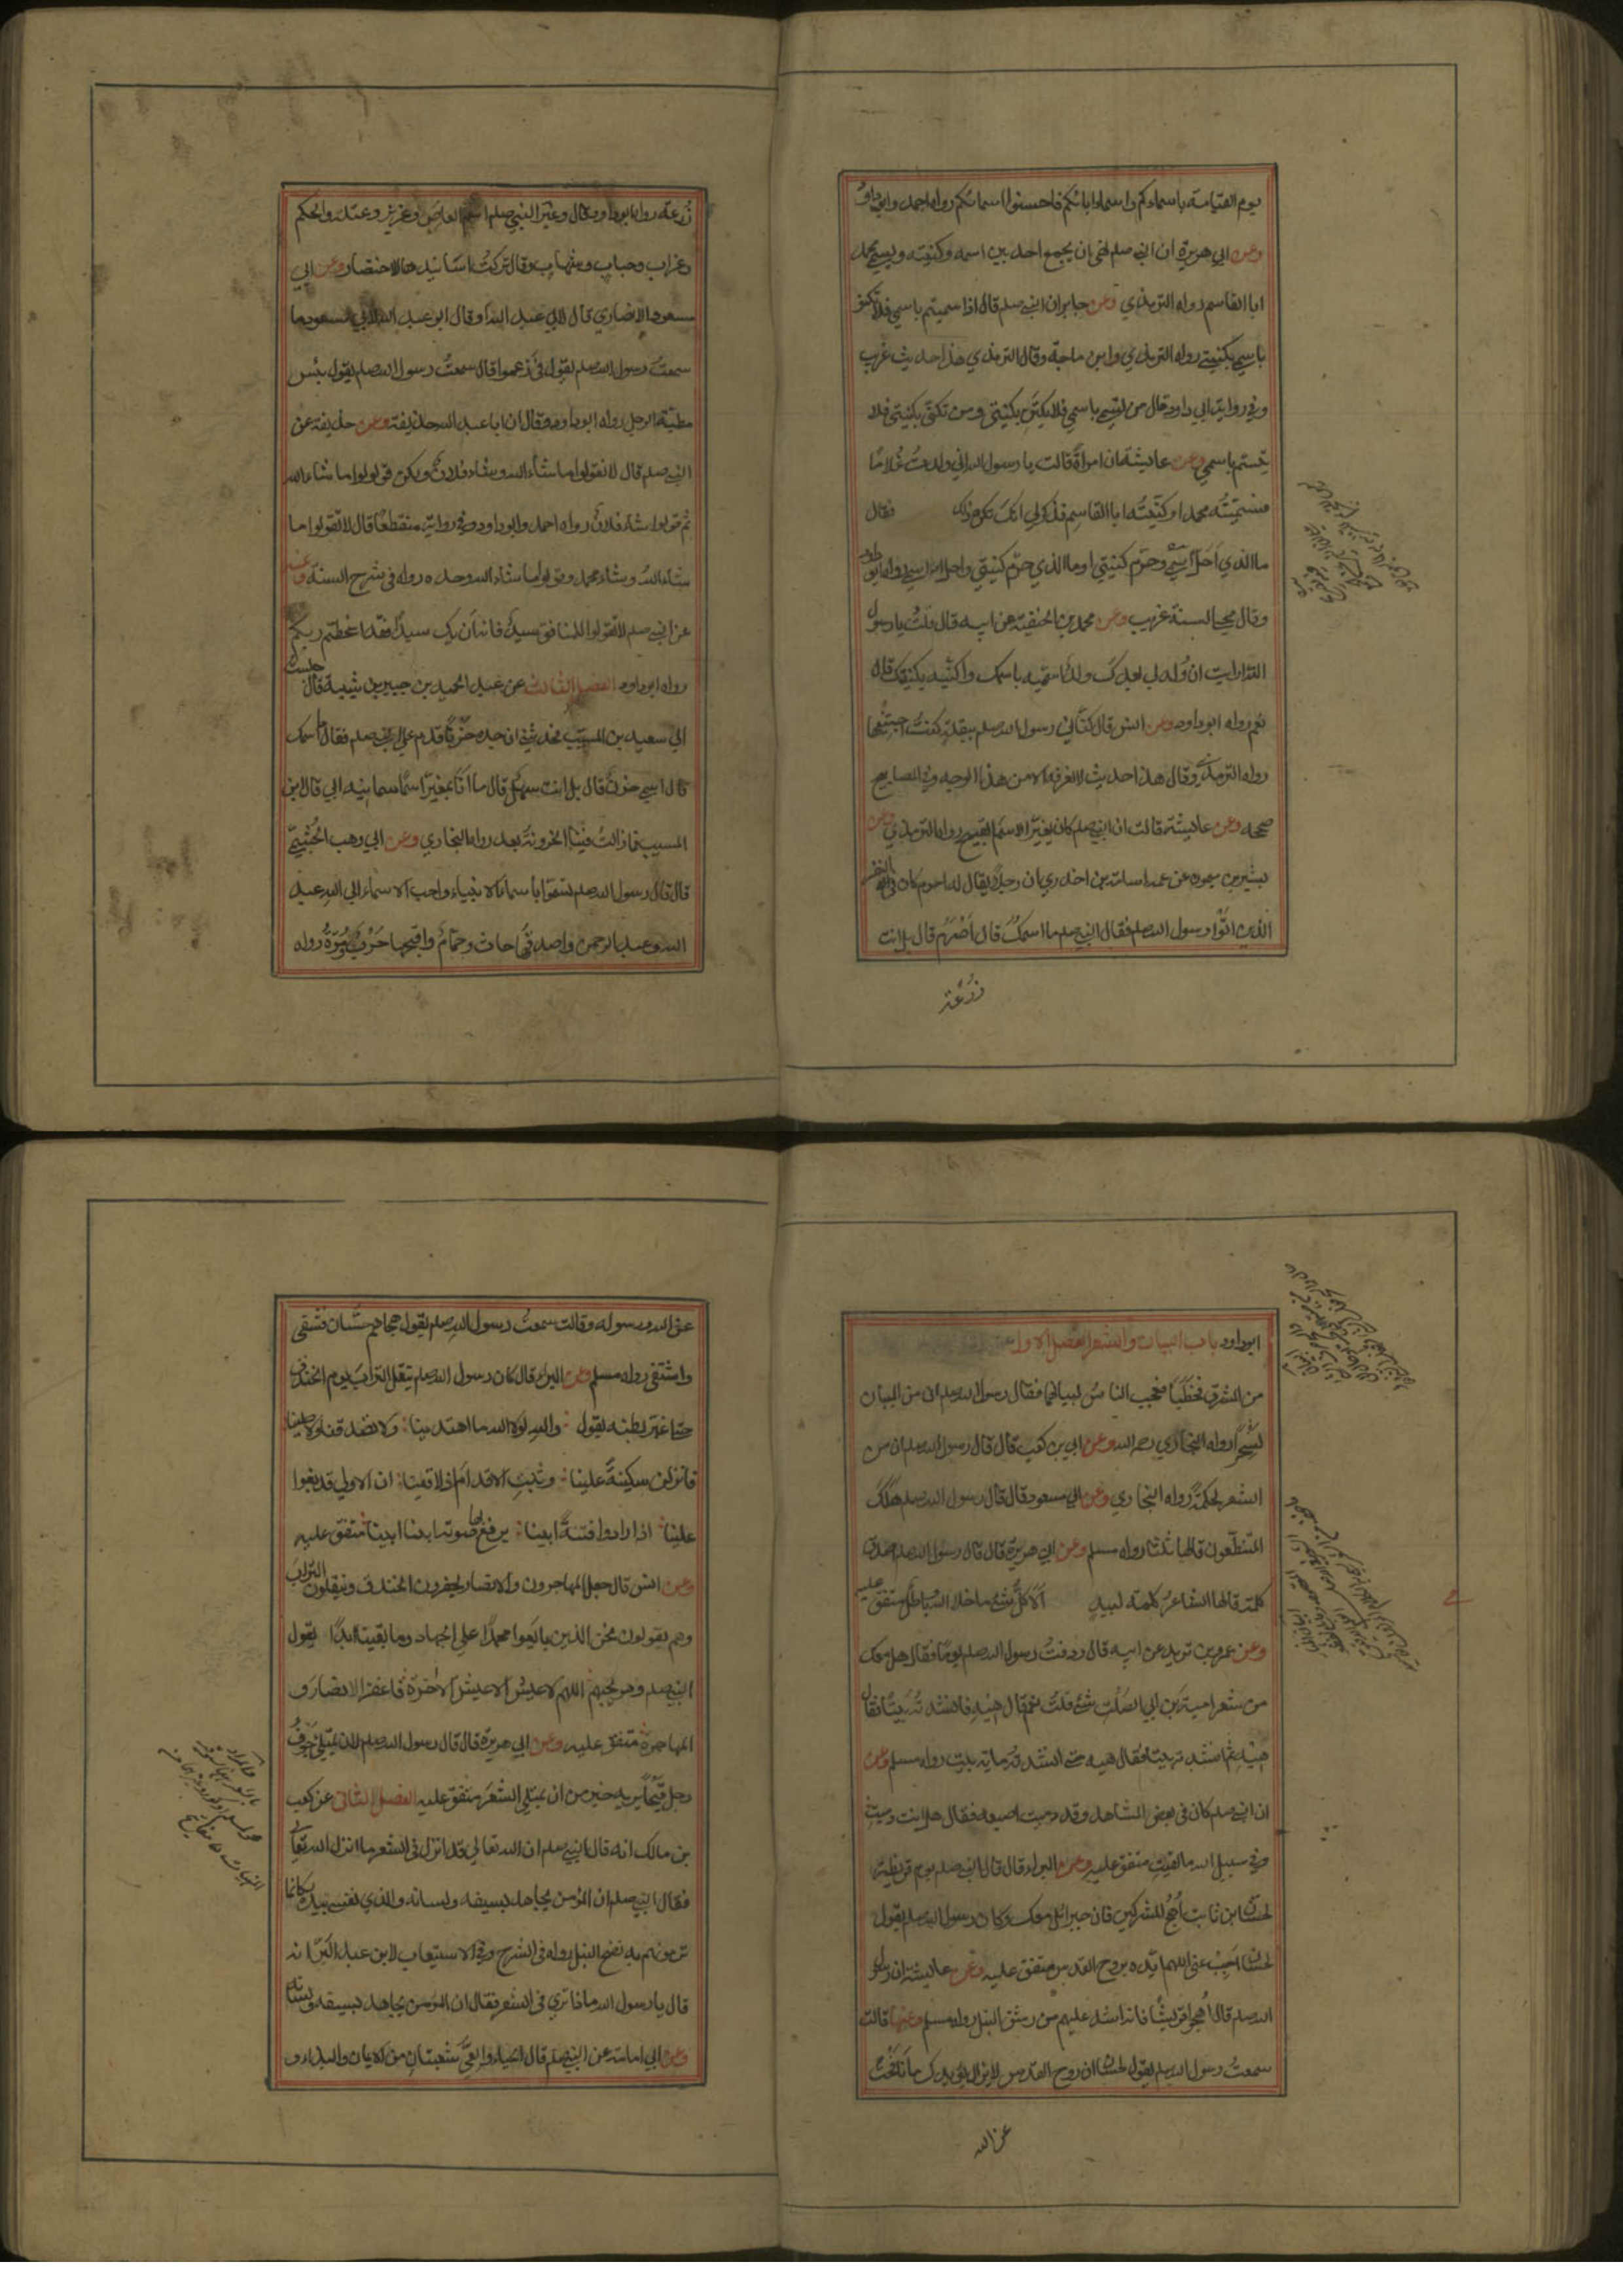 يوم القيامة باسماءكم واسماء ابائكم فاحسنوا اسمائكم رواه احمد وابوداود
وعن ابي هريرة ان النبي صلعم نهى ان يجمع احد بين اسمه وكنيته ويسمى محمد
ابا القاسم رواه الترمذي وعن جابر ان النبي صلعم قال اذا سميتم باسمي فلا تكنوا
بكنيتي رواه الترمذي وابن ماجة وقال الترمذي هذا حديث غريب
وفي رواية ابي داود قال من تسمى باسمي فلا يكتن بكنيتي ومن تكنى بكنيتي فلا
يتسم باسمي وعن عايشة ان امراة قالت يا رسول الله اني ولدت غلاما
فسميته محمدا وكنيته ابا القاسم فذكر لي انك تكره ذلك فقال
ما الذي احل اسمي وحرم كنيتي او ما الذي حرم كنيتي واحل اسمي رواه ابو داود
وقال محي السنة غريب وعن محمد بن الحنفية عن ابيه قال قلت يا رسول
الله ارايت ان ولد لي بعدك ولد اسميه باسمك واكنيه بكنيتك قال
نعم رواه ابوداود وعن انس قال كناني رسول الله صلعم ببقلة كنت اجتنيها
رواه الترمذي وقال هذا حديث لا نعرفه الا من هذا الوجه وفي المصابيح
صححه وعن عايشة قالت ان النبي صلعم كان يغير الاسم القبيح رواه الترمذي وعن
بشير بن ميمون عن عمه اسامة بن اخدري ان رجلا يقال له اصرم كان في النفر
الذين اتوا رسول الله صلعم فقال النبي صلعم ما اسمك قال اصرم قال بل انت
زرعة
زرعة رواه ابوداود وقال وغير النبي صلعم اسم العاص وعزيز وعتلة والحكم
وغراب وحباب وشهاب وقال تركت اسانيدها للاختصار وعن ابي
مسعود الانصاري قال لابي عبد الله او قال ابو عبد الله لابي مسعود ما
سمعت رسول الله صلعم يقول في زعموا قال سمعت رسول الله صلعم يقول بئس
مطية الرجل رواه ابوداود وقال ان ابا عبد الله حذيفة وعن حذيفة عن
النبي صلعم قال لا تقولوا ما شاء الله وشاء فلان ولكن قولوا ما شاء الله
ثم شاء فلان رواه احمد وابو داود وفي رواية منقطعا قال لا تقولوا ما
شاء الله وشاء محمد وقولوا ما شاء الله وحده رواه في شرح السنة وعنه
عن النبي صلعم لا تقولوا للمنافق سيد فانه ان يك سيدا فقد اسخطتم ربكم
رواه ابوداود الفصل الثالث عن عبد الحميد بن جبير بن شيبة قال جلست
الى سعيد بن المسيب فحدثني ان جده حزنا قدم على النبي صلعم فقال ما اسمك
قال اسمي حزن قال بل انت سهل قال ما انا بمغير اسما سمانيه ابي قال ابن
المسيب فما زالت فينا الحزونة بعد رواه البخاري وعن ابي وهب الجشمي
قال قال رسول الله صلعم تسموا باسماء الانبياء واحب الاسماء الى الله عبد
الله وعبد الرحمن واصدقها حارث وهمام واقبحها حرب ومرة رواه
ابوداود باب البيان والشعر الفصل الاول
من المشرق فخطبا فعجب الناس لبيانهما فقال رسول الله صلعم ان من البيان
لسحرا رواه البخاري رحمه الله وعن ابي بن كعب قال قال رسول الله صلعم ان من
الشعر لحكمة رواه البخاري وعن ابي مسعود قال قال رسول الله صلعم هلك
المتنطعون قالها ثلثا رواه مسلم وعن ابي هريرة قال قال رسول الله صلعم اصدق
كلمة قالها الشاعر كلمة لبيد الا كل شئ ما خلا الله باطل متفق عليه
وعن عمرو بن شريد عن ابيه قال ردفت رسول الله صلعم يوما فقال هل معك
من شعر امية بن ابي الصلت شئ قلت نعم قال هيه فانشدته بيتا فقال
هيه ثم انشدته بيتا فقال هيه حتى انشدته ماية بيت رواه مسلم وعن
ان النبي صلعم كان في بعض المشاهد وقد دميت اصبعه فقال هل انت دميت
وفي سبيل الله ما لقيت متفق عليه وعن البراء قال قال النبي صلعم يوم قريظة
لحسان ابن ثابت اهج المشركين فان جبرائل معك وكان رسول الله صلعم يقول
لحسان اجب عني اللهم ايده بروح القدس متفق عليه وعن عايشة ان رسول
الله صلعم قال اهجوا قريشا فانه اشد عليهم من رشق النبل رواه مسلم وعنها قالت
سمعت رسول الله صلعم يقول لحسان ان روح القدس لا يزال يؤيدك ما نافحت
عن الله
عن الله ورسوله وقالت سمعت رسول الله صلعم يقول هجاهم حسان فشفى
واشتفى رواه مسلم وعن البراء قال كان رسول الله صلعم ينقل التراب يوم الخندق
حتى اغبر بطنه يقول والله لولا الله ما اهتدينا ولا تصدقنا ولا صلينا
فانزلن سكينة علينا وثبت الاقدام ان لاقينا ان الاولى قد بغوا
علينا اذا ارادوا فتنة ابينا يرفع بها صوته ابينا ابينا متفق عليه
وعن انس قال جعل المهاجرون والانصار يحفرون الخندق وينقلون التراب
وهم يقولون نحن الذين بايعوا محمدا على الجهاد وما بقينا ابدا يقول
النبي صلعم وهو يجيبهم اللهم لا عيش الا عيش الاخرة فاغفر الانصار و
المهاجرة متفق عليه وعن ابي هريرة قال قال رسول الله صلعم لان يمتلي جوف
رجل قيحا يريه خير من ان يمتلي الشعر متفق عليه الفصل الثاني عن كعب
بن مالك انه قال للنبي صلعم ان الله تعالى قد انزل في الشعر ما انزل الله تعالى
فقال النبي صلعم ان المؤمن يجاهد بسيفه ولسانه والذي نفسي بيده لكانما
ترمونهم به نضح النبل رواه في الشرح وفي الاستيعاب لابن عبد البر انه
قال يا رسول الله ماذا ترى في الشعر فقال ان المؤمن يجاهد بسيفه ولسانه
وعن ابي امامة عن النبي صلعم قال الحياء والعي شعبتان من الايمان والبذاء و